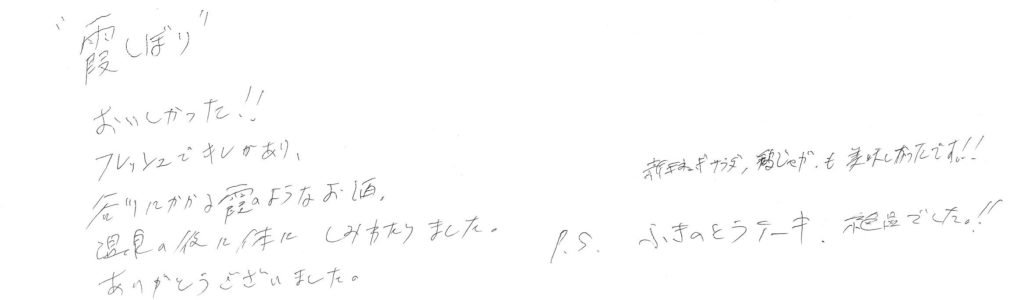 "霞しぼり"
おいしかった!!
フレッシュでキレがあり、
谷川にかかる霞のようなお酒。
温泉の後に体に しみわたりました。
ありがとうございました。
新玉ねぎサラダ, じゃが、も 美味しかったです!!
P.S. ふきのとうテーキ、絶品でした。!!